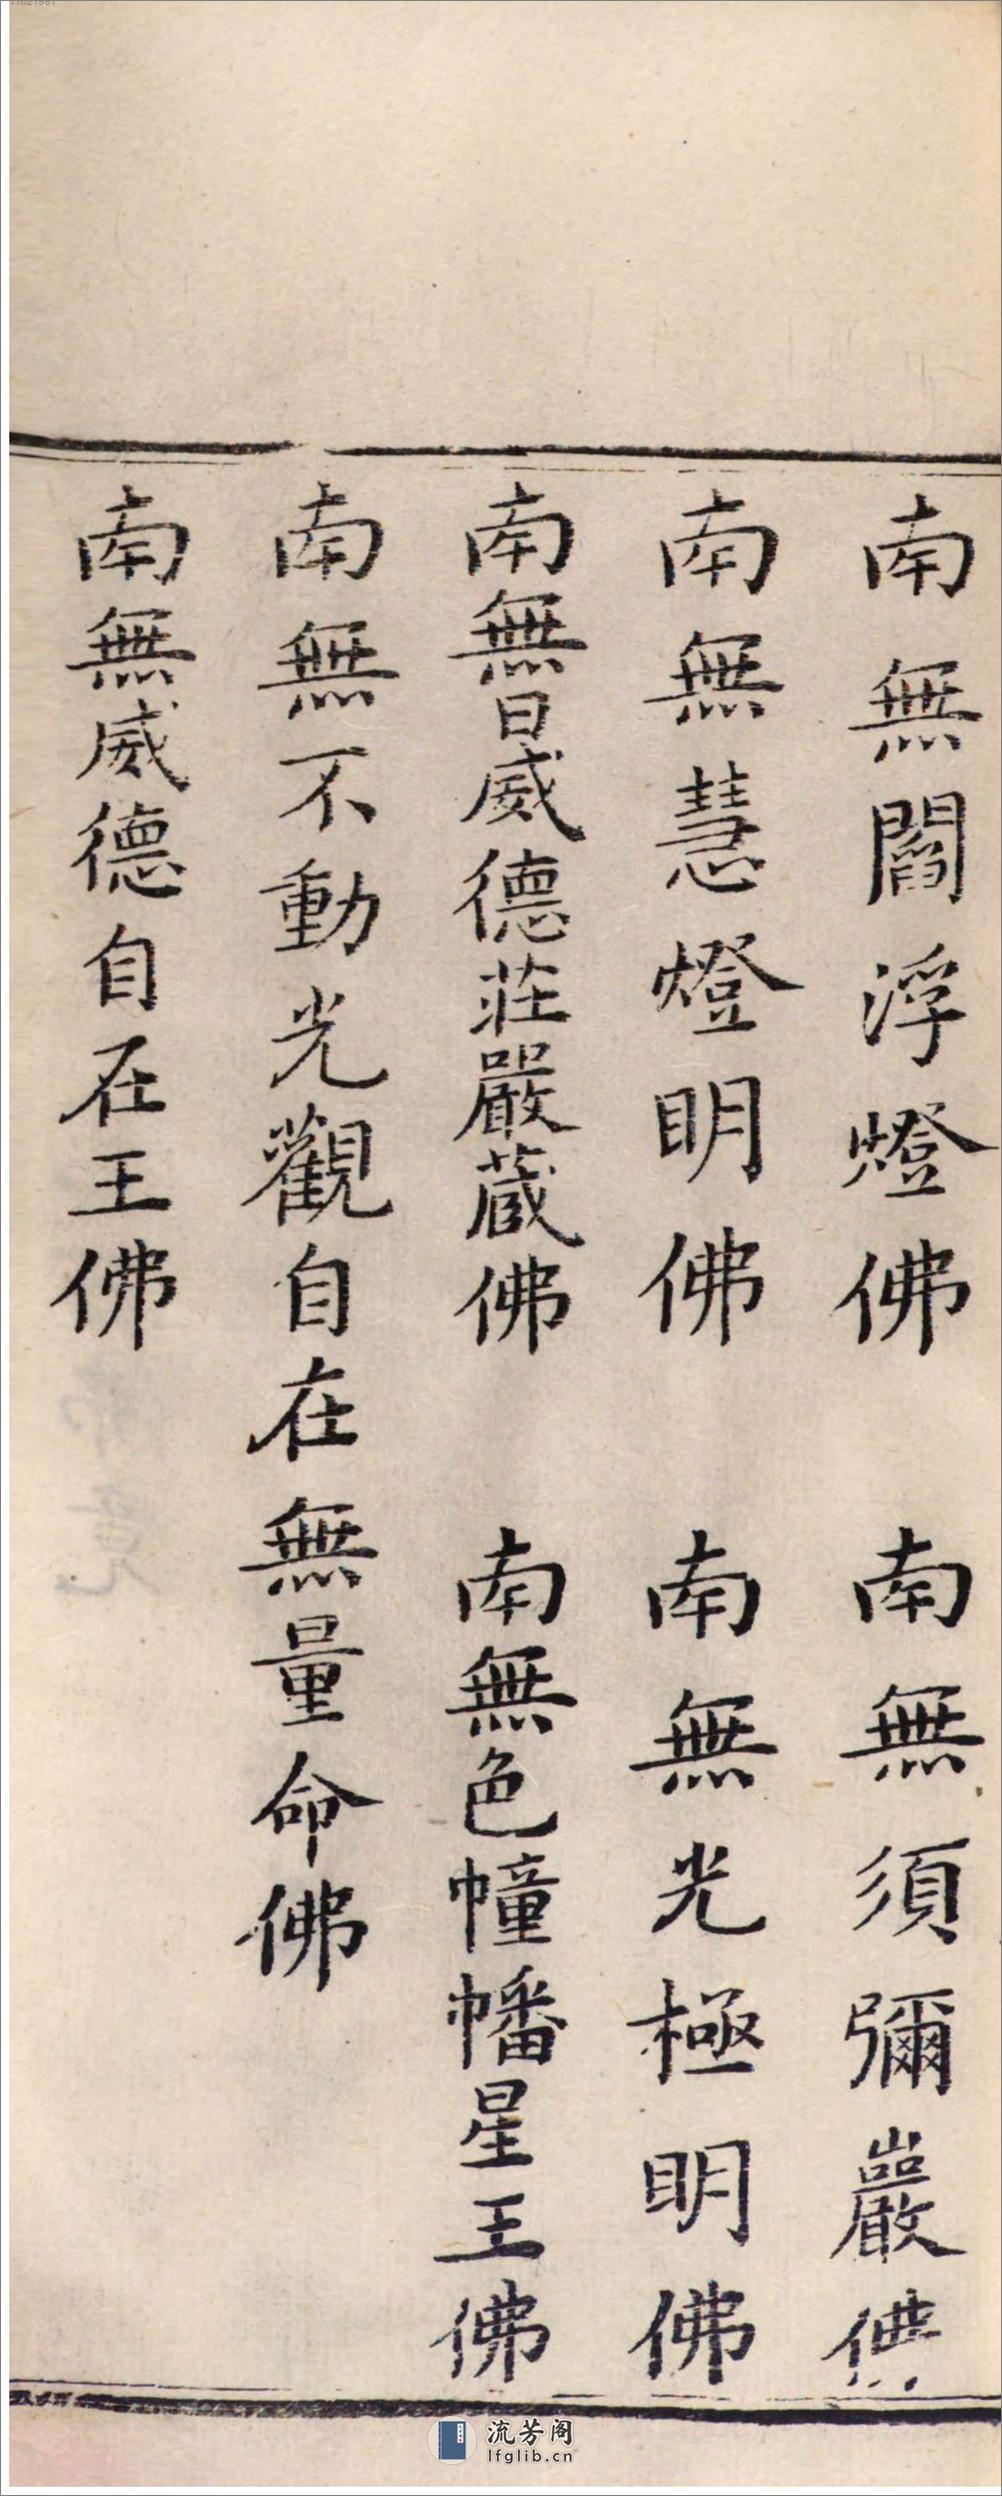 南無閻浮燈佛　南無須彌巖佛
南無慧燈明佛　南無光極明佛
南無日威德莊嚴藏佛　南無色幢幡星王佛
南無不動光觀自在無量命佛
南無威德自在王佛
流芳阁
lfglib.cn